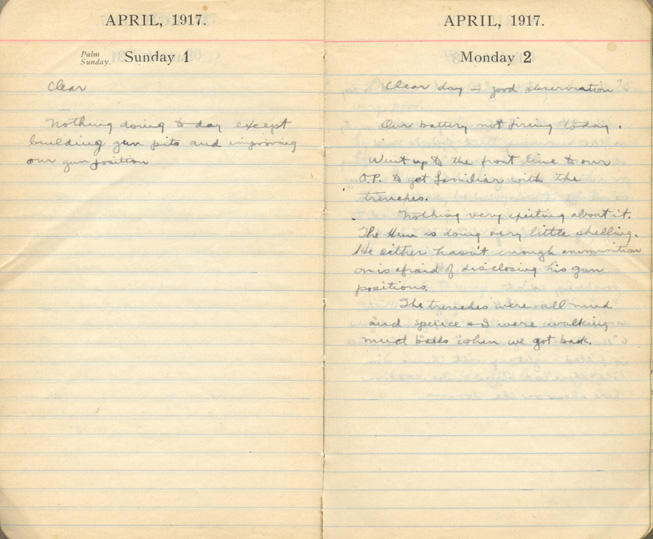 APRIL, 1917.
Palm
Sunday. Sunday 1
Clear
Nothing doing to day except
building gun pits and improving
our gun position
APRIL, 1917.
Monday 2
Clear day – good observation
Our battery not firing to day.
Went up to the front line to our
O.P. to get familiar with the
trenches.
Nothing very exciting about it.
The Hun is doing very little shelling.
He either hasn't enough ammunition
or is afraid of disclosing his gun
positions.
The trenches were all mud
and & I were walking
mud balls when we got back.